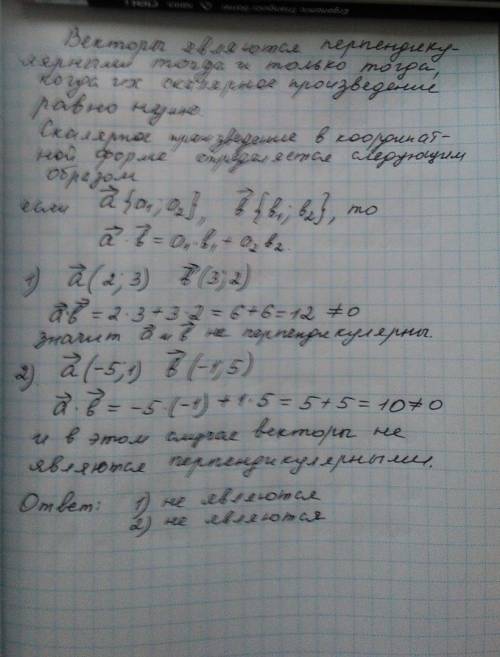 Векторы являются перпендику-
лярными тогда и только тогда,
когда их скалярное произведение
равно нулю.
Скалярное произведение в координат-
ной форме определяется следующим
образом
если a⃗ {a₁; a₂}, b⃗ {b₁; b₂}, то
a⃗ · b⃗ = a₁·b₁ + a₂b₂.
1) a⃗ (2; 3) b⃗ (3; 2)
a⃗b⃗ = 2·3 + 3·2 = 6+6 = 12 ≠ 0
значит a⃗ и b⃗ не перпендикулярны.
2) a⃗ (-5; 1) b⃗ (-1; 5)
a⃗ · b⃗ = -5·(-1) + 1·5 = 5+5 = 10 ≠ 0
и в этом случае векторы не
являются перпендикулярными.
Ответ: 1) не являются
2) не являются